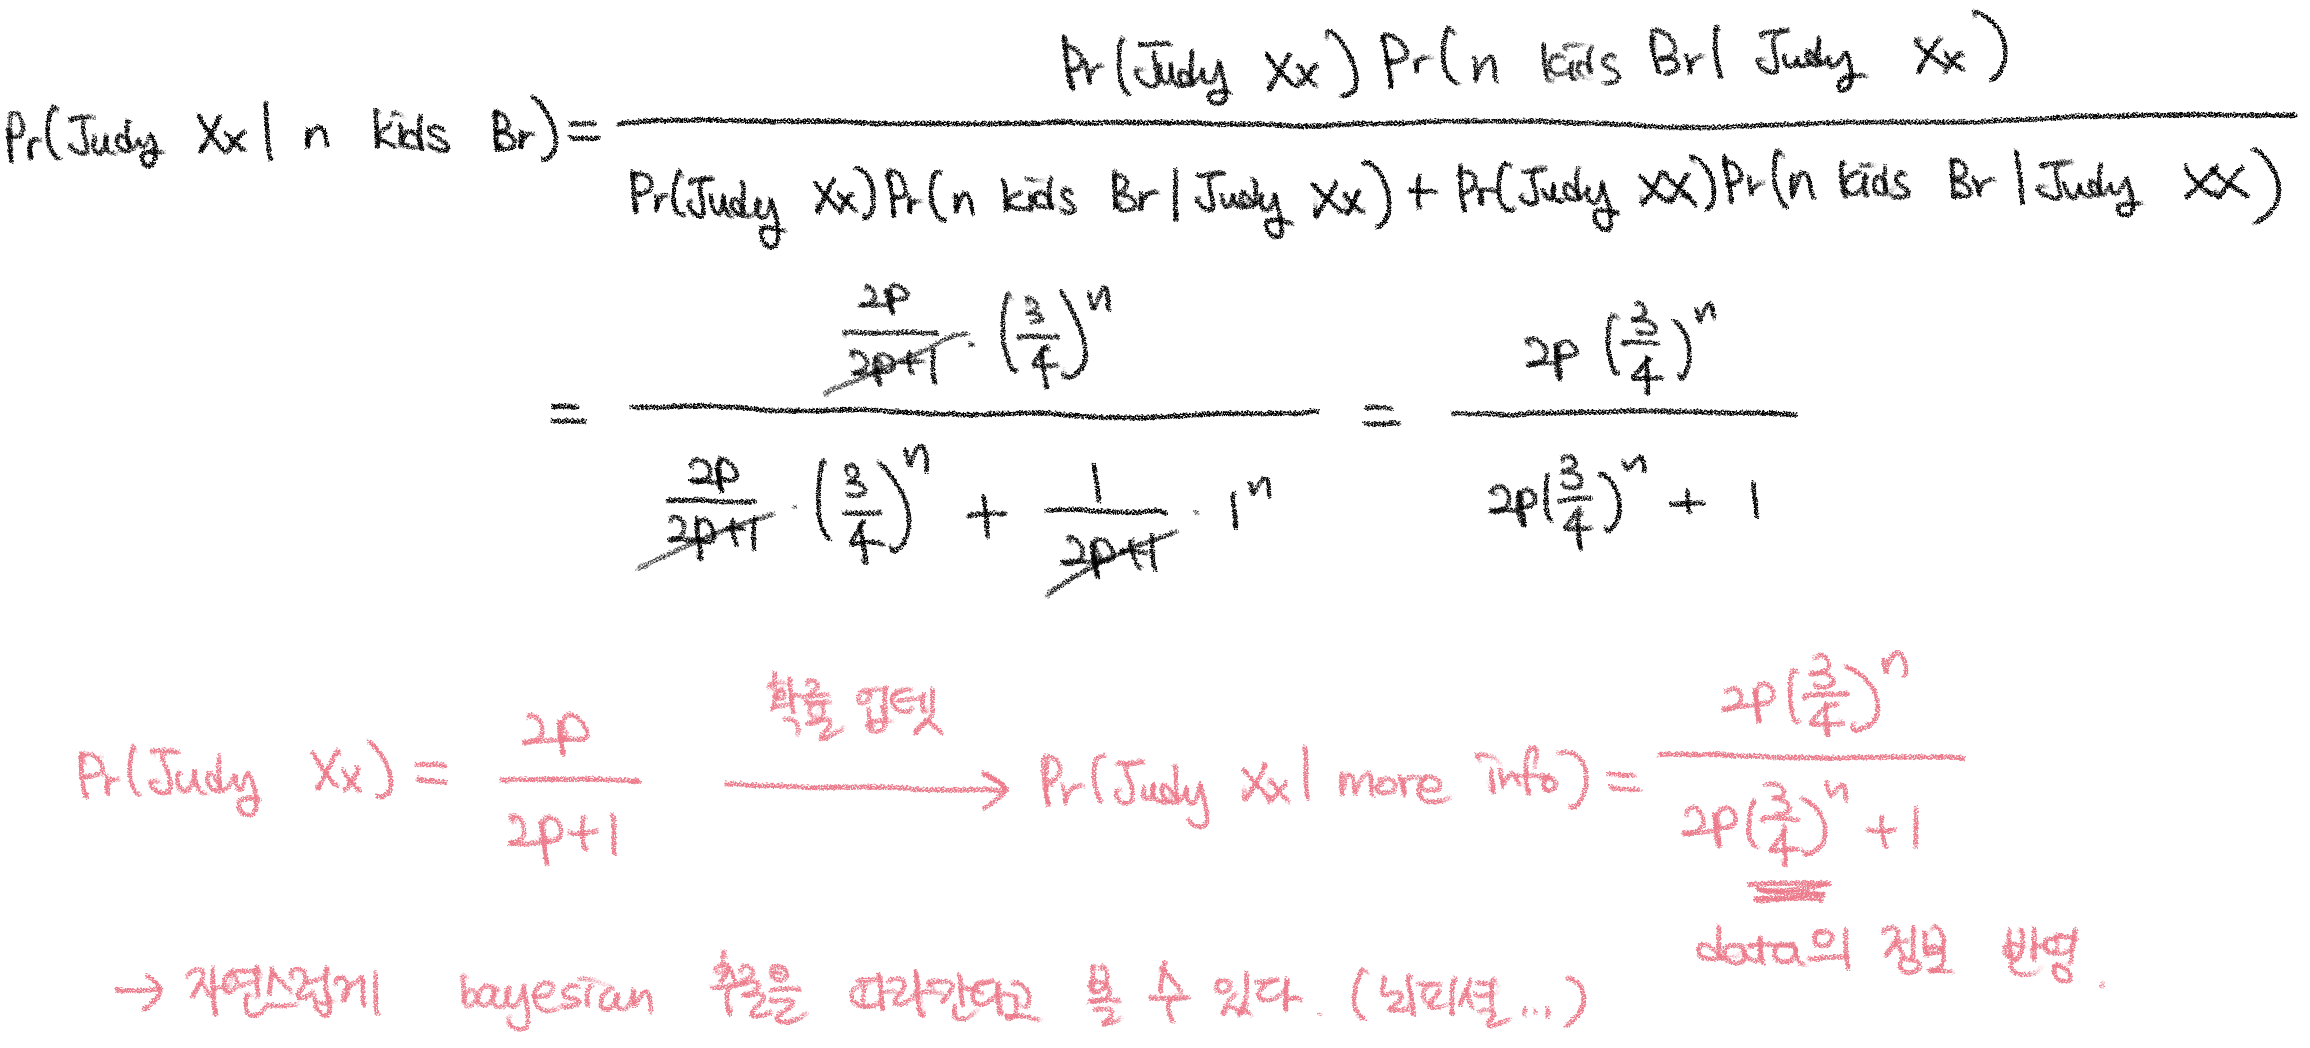 Pr(Judy Xx | n kids Br) = Pr(Judy Xx) Pr(n kids Br | Judy Xx) / Pr(Judy Xx) Pr(n kids Br | Judy Xx) + Pr(Judy XX) Pr(n kids Br | Judy XX)
= 2p/2p+1 · (3/4)^n / 2p/2p+1 · (3/4)^n + 1/2p+1 · 1^n = 2p (3/4)^n / 2p(3/4)^n + 1
확률 업뎃
Pr(Judy Xx) = 2p/2p+1 → Pr(Judy Xx | more info) = 2p(3/4)^n / 2p(3/4)^n + 1
data의 정보 반영.
→ 자연스럽게 bayesian 추론을 따라간다고 볼 수 있다. (뇌피셜...)